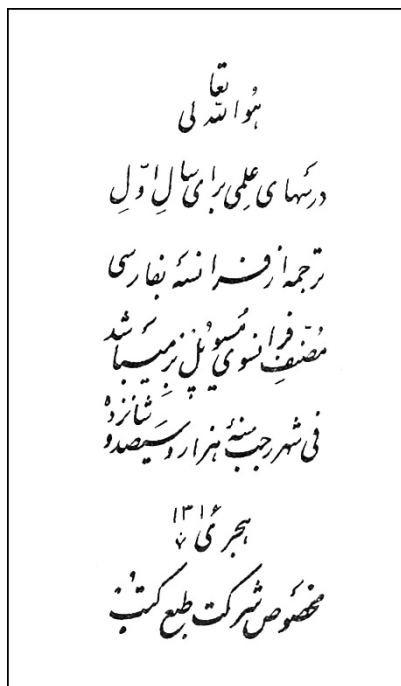 هُوالله تعالی
درسهای عِلمی برای سالِ اوّلِ
ترجمه از فرانسهٔ بفارسی
مُصنّفِ فرانسوی مُسیو پُل بِر میباشد
فی شهر رجب سنهٔ هزار و سیصد و شانزده
۱۳۱۶
هجری
مخصُوص شرکت طبع کتب